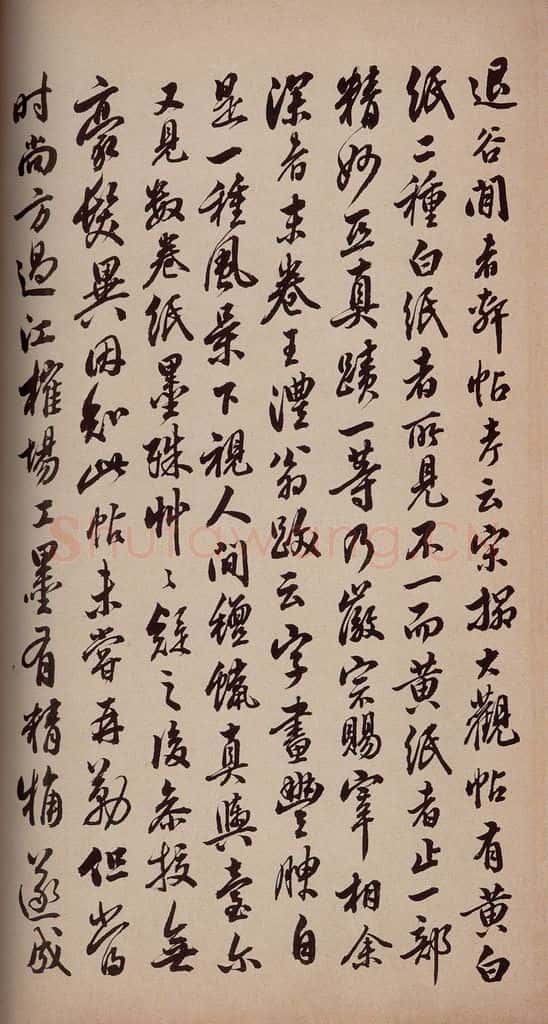 退谷閒者軒帖考云宋搨大觀帖有黃白
紙二種白紙者所見不一而黃紙者止一部
精妙亞真蹟一等乃徽宗賜宰相余
深者末卷王澧翁跋云字畫豐腴自
是一種風景下視人間 真輿臺尔
又見數卷紙墨殊艸〻疑之後參校無
豪髮異因知此帖未嘗再勒但當
时尚方過江榷場工墨有精觕遂成